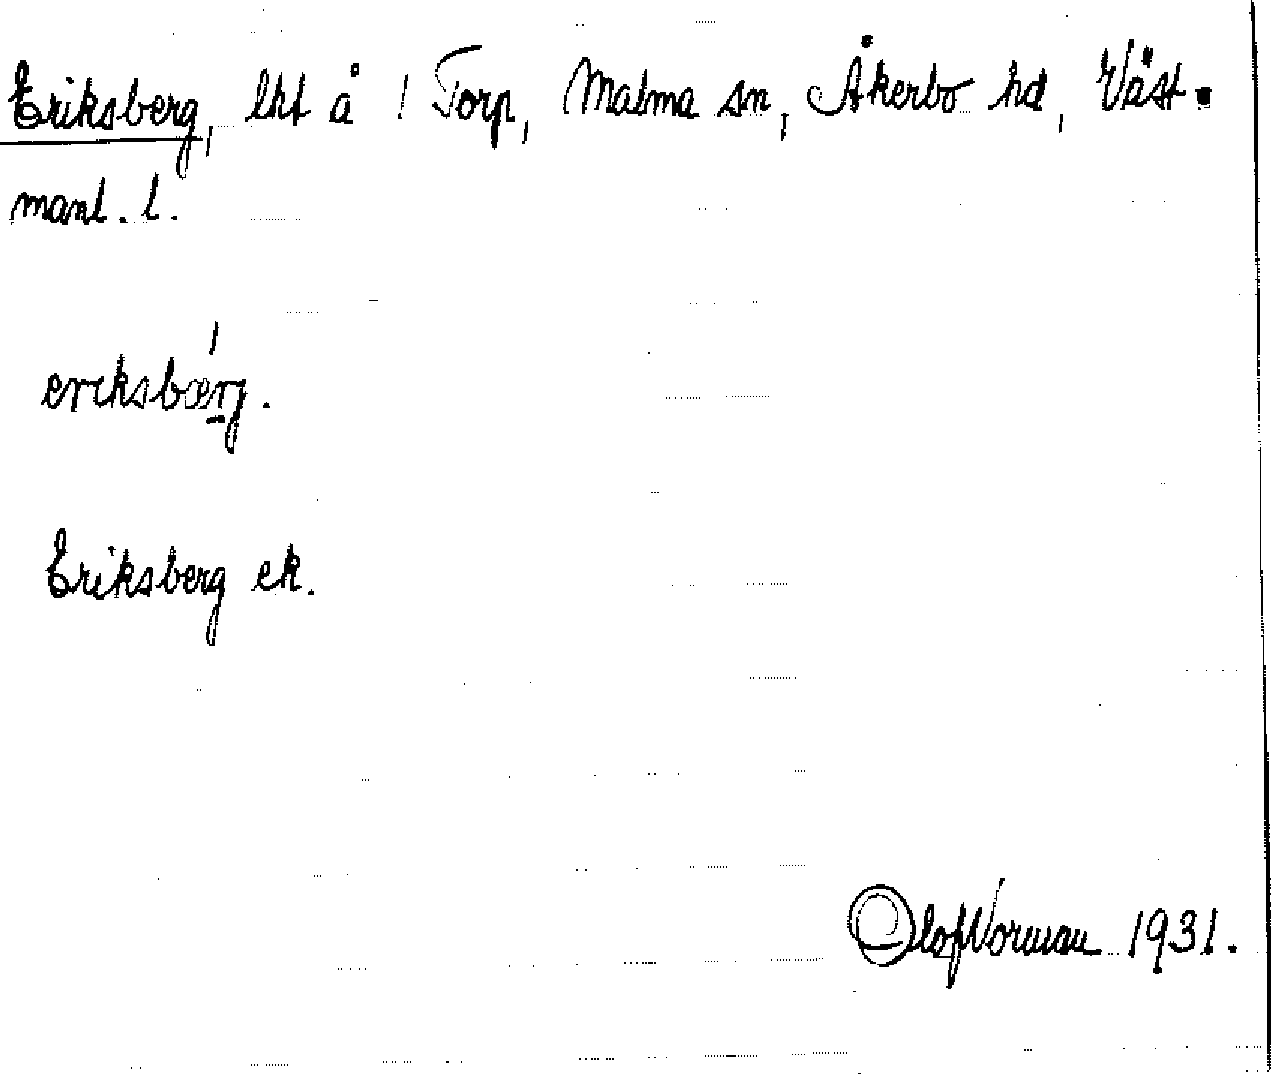 Eriksberg, lht å ! Torp, Malma sn, Åkerbo hd, Väst-
manl. l.
eriksbærj.
Eriksberg ek.
Olof Norman 1931.